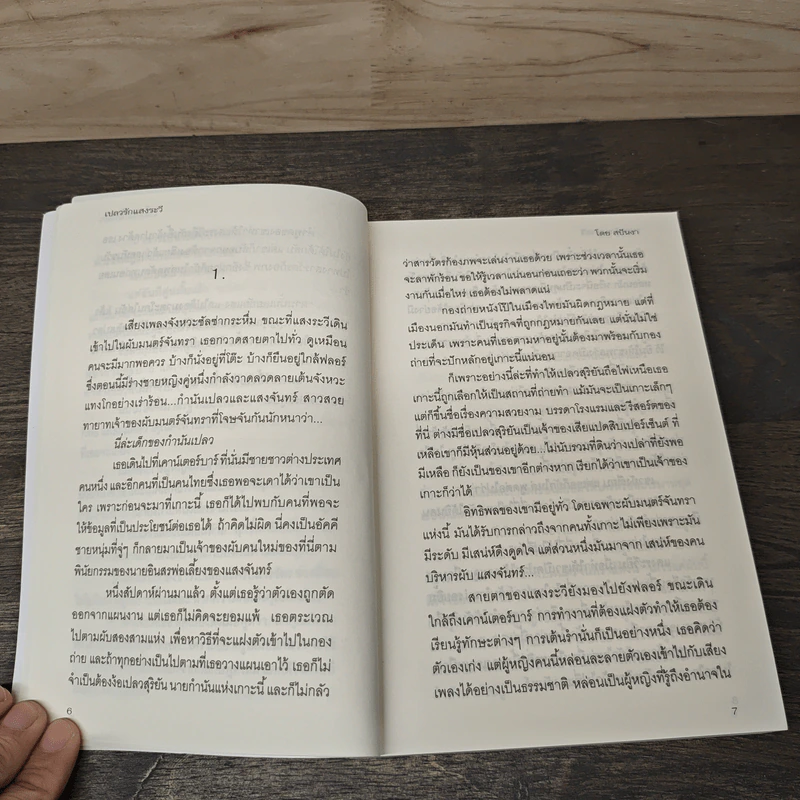 เปลวรักแสงระวี
1.
เสียงเพลงจังหวะซัลซ่ากระหึ่ม ขณะที่แสงระวีเดิน
เข้าไปในผับมนตร์จันทรา เธอกวาดสายตาไปทั่ว ดูเหมือน
คนจะมีมากพอควร บ้างก็นั่งอยู่ที่โต๊ะ บ้างก็ยืนอยู่ใกล้ฟลอร์
ซึ่งตอนนี้มีร่างชายหญิงคู่หนึ่งกำลังวาดลวดลายเต้นจังหวะ
แทงโกอย่างเร่าร้อน...กำนันเปลวและแสงจันทร์ สาวสวย
ทายาทเจ้าของผับมนตร์จันทราที่โจษจันกันนักหนาว่า...
นี่ล่ะเด็กของกำนันเปลว
เธอเดินไปที่เคาน์เตอร์บาร์ ที่นั่นมีชายชาวต่างประเทศ
คนหนึ่ง และอีกคนที่เป็นคนไทยซึ่งเธอพอจะเดาได้ว่าเขาเป็น
ใคร เพราะก่อนจะมาที่เกาะนี้ เธอก็ได้ไปพบกับคนที่พอจะ
ให้ข้อมูลที่เป็นประโยชน์ต่อเธอได้ ถ้าคิดไม่ผิด นี่คงเป็นอัคคี
ชายหนุ่มที่จู่ๆ ก็กลายมาเป็นเจ้าของผับคนใหม่ของที่นี่ตาม
พินัยกรรมของนายอินสรพ่อเลี้ยงของแสงจันทร์
หนึ่งสัปดาห์ผ่านมาแล้ว ตั้งแต่เธอรู้ว่าตัวเองถูกตัด
ออกจากแผนงาน แต่เธอก็ไม่คิดจะยอมแพ้ เธอตระเวณ
ไปตามผับสองสามแห่ง เพื่อหาวิธีที่จะแฝงตัวเข้าไปในกอง
ถ่าย และถ้าทุกอย่างเป็นไปตามที่เธอวางแผนเอาไว้ เธอก็ไม่
จำเป็นต้องง้อเปลวสุริยัน นายกำนันแห่งเกาะนี้ และก็ไม่กลัว
6
โดย
ว่าสารวัตรก้องภพจะเล่นงานเธอด้วย เพราะช่วงเวลานั้นเธอ
จะลาพักร้อน ขอให้รู้เวลาแน่นอนก่อนเถอะว่า พวกนั้นจะเริ่ม
งานกันเมื่อไหร่ เธอต้องไม่พลาดแน่
กองถ่ายหนังโป๊ในเมืองไทยมันผิดกฎหมาย แต่ที่
เมืองนอกมันทำเป็นธุรกิจที่ถูกกฎหมายกันเลย แต่นั่นไม่ใช่
ประเด็น เพราะคนที่เธอตามหาอยู่นั้นต้องมาพร้อมกับกอง
ถ่ายที่จะปักหลักอยู่เกาะนี้แน่นอน
ก็เพราะอย่างนี้ล่ะที่ทำให้เปลวสุริยันถือไพ่เหนือเธอ
เกาะนี้ถูกเลือกให้เป็นสถานที่ถ่ายทำ แม้มันจะเป็นเกาะเล็กๆ
แต่ก็ขึ้นชื่อเรื่องความสวยงาม บรรดาโรงแรมและรีสอร์ตของ
ที่นี่ ต่างมีชื่อเปลวสุริยันเป็นเจ้าของเสียแปดสิบเปอร์เซ็นต์ ที่
เหลือเขาก็มีหุ้นส่วนอยู่ด้วย...ไม่นับรวมที่ดินว่างเปล่าที่ยังพอ
มีเหลือ ก็ยังเป็นของเขาอีกต่างหาก เรียกได้ว่าเขาเป็นเจ้าของ
เกาะก็ว่าได้
อิทธิพลของเขามีอยู่ทั่ว โดยเฉพาะผับมนตร์จันทรา
แห่งนี้ มันได้รับการกล่าวถึงจากคนทั้งเกาะ ไม่เพียงเพราะมัน
มีระดับ มีเสน่ห์ดึงดูดใจ แต่ส่วนหนึ่งมันมาจาก เสน่ห์ของคน
บริหารผับ แสงจันทร์...
สายตาของแสงระวียังมองไปยังฟลอร์ ขณะเดิน
ใกล้ถึงเคาน์เตอร์บาร์ การทำงานที่ต้องแฝงตัวทำให้เธอต้อง
เรียนรู้ทักษะต่างๆ การเต้นรำนั่นก็เป็นอย่างหนึ่ง เธอคิดว่า
ตัวเองเก่ง แต่ผู้หญิงคนนี้หล่อนละลายตัวเองเข้าไปกับเสียง
เพลงได้อย่างเป็นธรรมชาติ หล่อนเป็นผู้หญิงที่รู้ถึงอำนาจใน
7